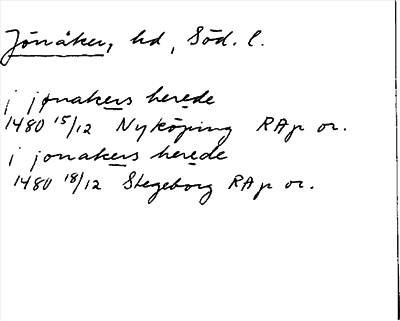 Jönåker, hd, Söd. l.
i jønakers herede
1480 15/12 Nyköping RAp or.
i jonakers herede
1480 18/12 Stegeborg RAp or.